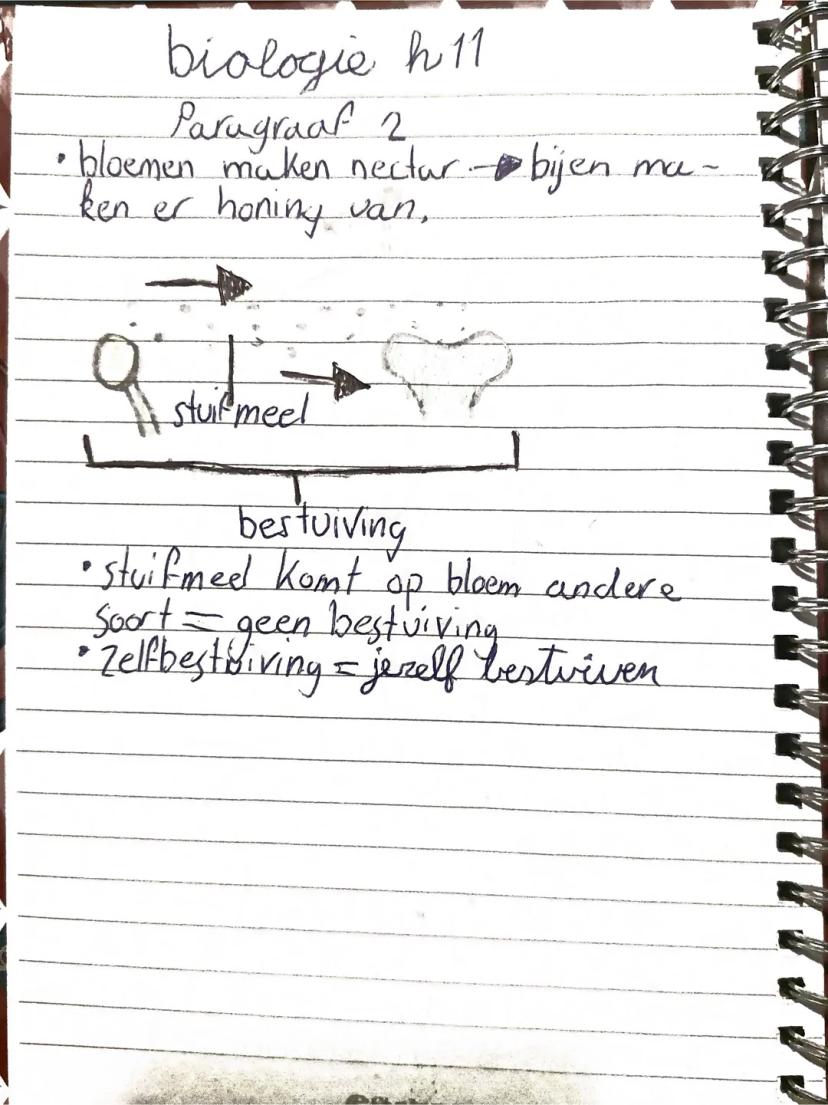 biologie h11
Paragraaf 2
• bloemen maken nectar → bijen ma-
ken er honing van.
stuifmeel
bestuiving
• stuifmeel komt op bloem andere
soort = geen bestuiving
• zelfbestuiving = jezelf bestuiven